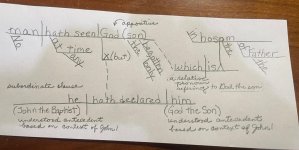 appositive
man | hath seen | God (son)
No
at time
any
X (but)
begotten
the
only
bosom
in
the
of
Father
the
which | is
a relative
pronoun
referring to God the son
subordinate clause
he | hath declared | him
(John the Baptist)
understood antecedent
based on context of John 1
(God the Son)
understood antecedent
based on context of John 1